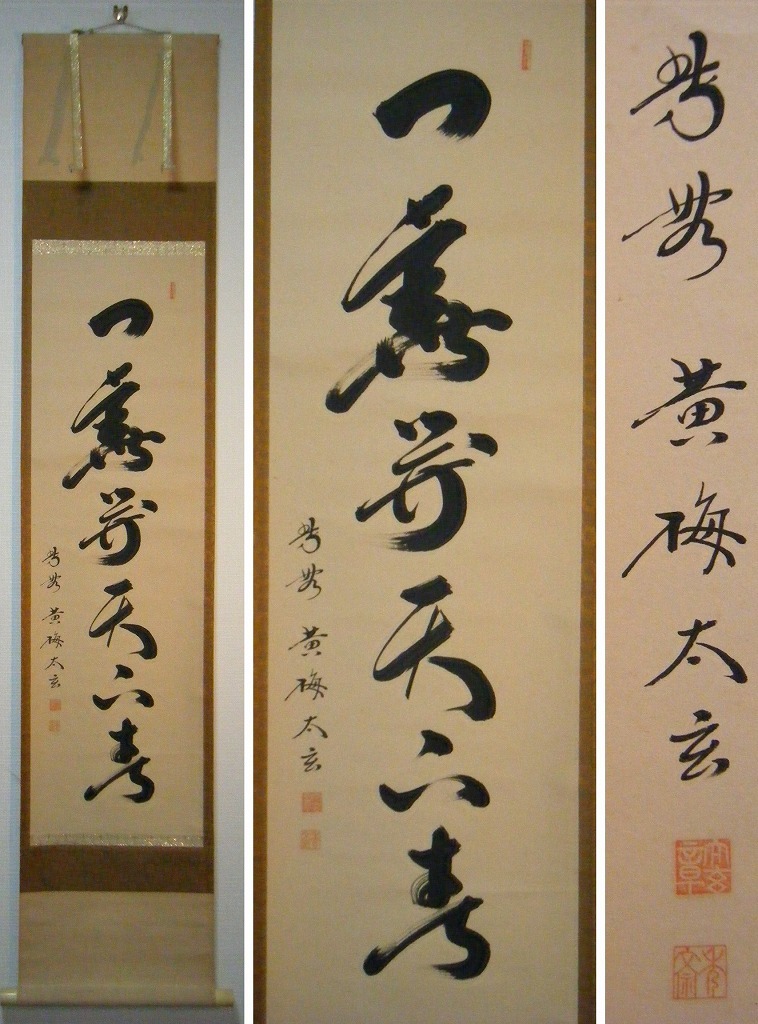 一華開天下春
紫野 黄梅太玄
一華開天下春
紫野 黄梅太玄
紫野 黄梅太玄